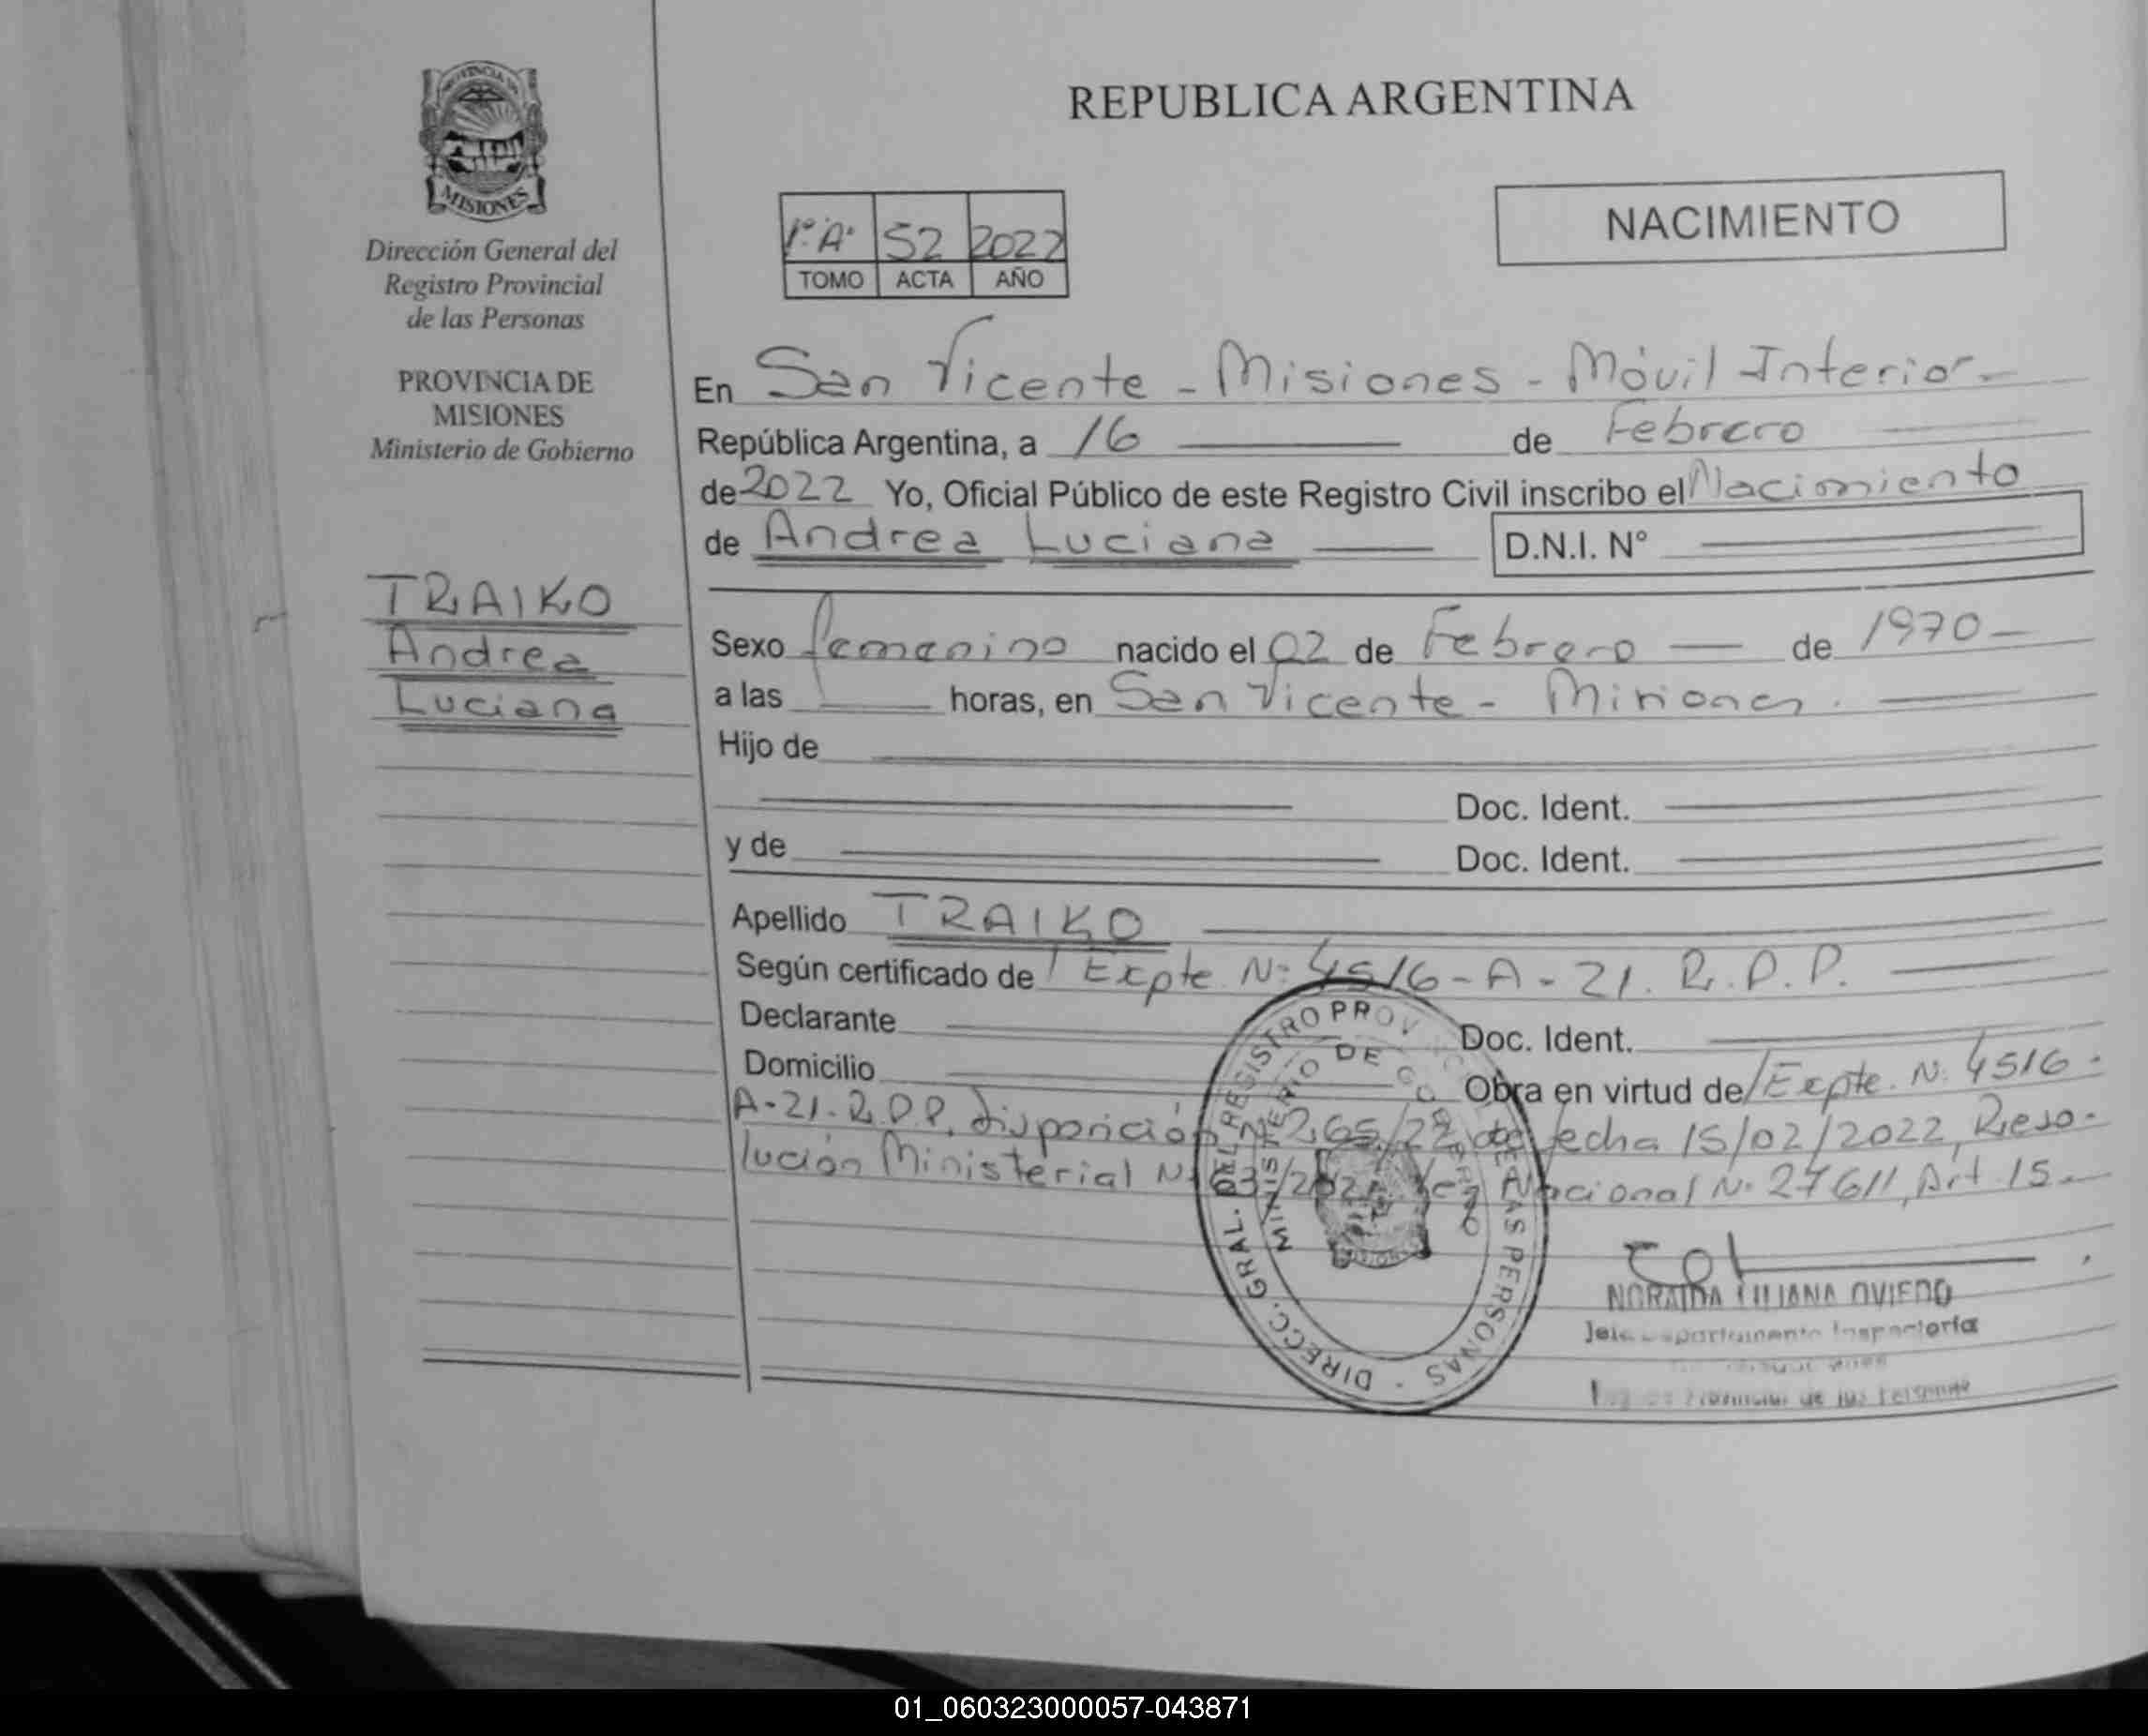 PROVINCIA DE
MISIONES
Dirección General del
Registro Provincial
de las Personas
PROVINCIA DE
MISIONES
Ministerio de Gobierno
TRAIKO
Andrea
Luciana
REPUBLICA ARGENTINA
NACIMIENTO
1º "A" 52 2022
TOMO ACTA AÑO
En San Vicente - Misiones - Móvil Interior -
República Argentina, a 16 de Febrero
de 2022 Yo, Oficial Público de este Registro Civil inscribo el Nacimiento
de Andrea Luciana D.N.I. N°
Sexo femenino nacido el 02 de Febrero de 1970
a las horas, en San Vicente - Misiones.
Hijo de
Doc. Ident.
y de Doc. Ident.
Apellido TRAIKO
Según certificado de / Expte. Nº 4516-A-21. R.P.P.
Declarante Doc. Ident.
Domicilio Obra en virtud de / Expte. Nº 4516-
A-21-R.P.P. disposición Nº 265/22 de fecha 15/02/2022, Reso-
lución Ministerial Nº Nacional Nº 27611, Art. 15.-
DIRECC. GRAL. DEL REGISTRO PROV DE LAS PERSONAS
MINISTERIO DE GOBIERNO
NORAIDA LILIANA OVIEDO
Jefe Departamento Inspectoría
Provincial de las Personas
01_060323000057-043871